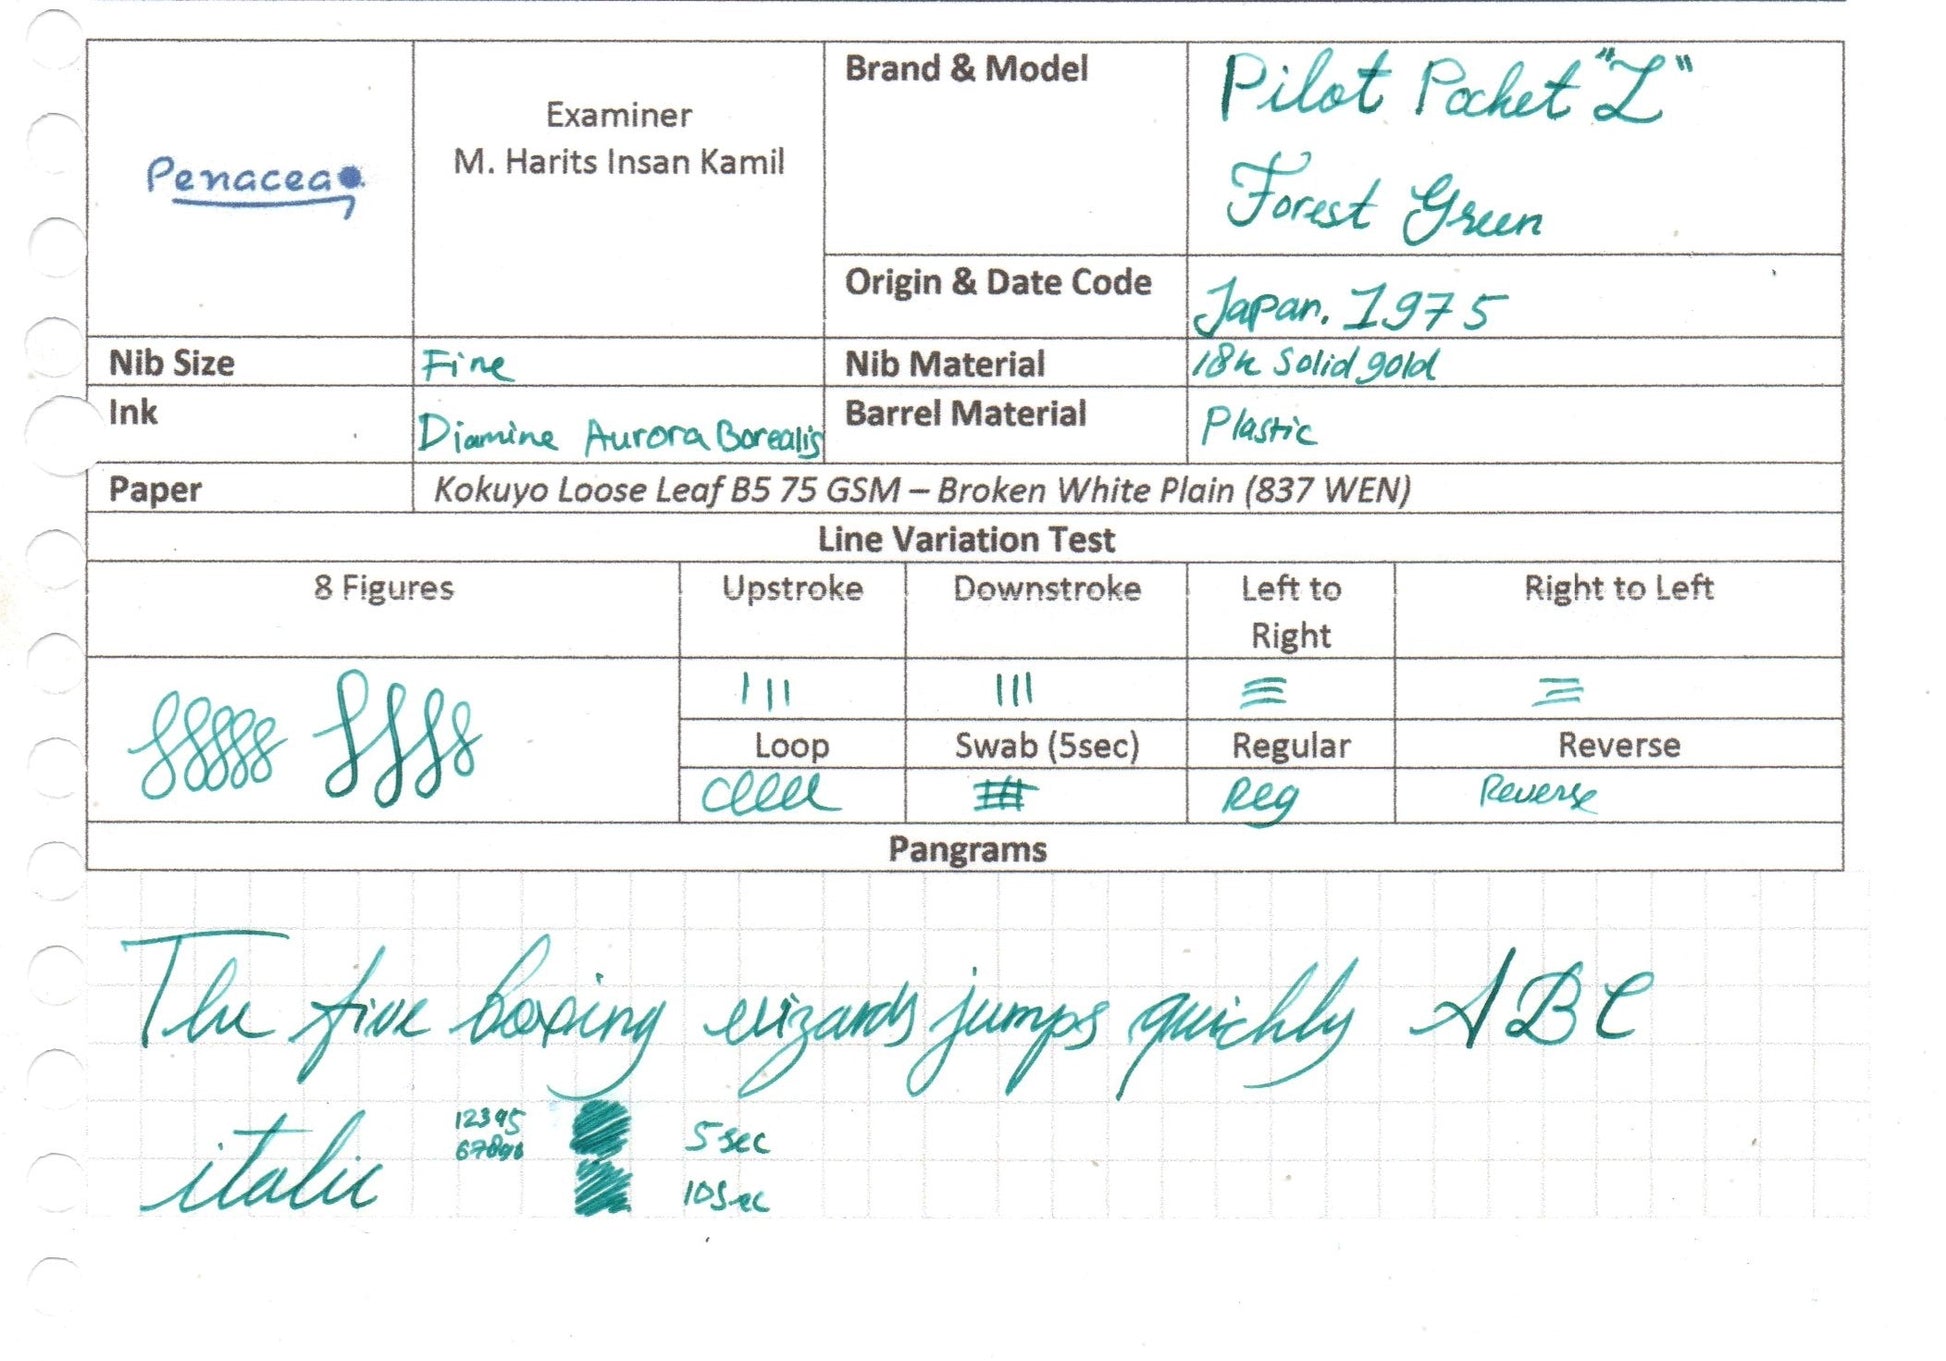 Penacea
Examiner
M. Harits Insan Kamil
Brand & Model
Pilot Pocket "L"
Forest Green
Origin & Date Code
Japan. 1975
Nib Size
Fine
Nib Material
18k Solid gold
Ink
Diamine Aurora Borealis
Barrel Material
Plastic
Paper
Kokuyo Loose Leaf B5 75 GSM – Broken White Plain (837 WEN)
Line Variation Test
8 Figures
Upstroke
Downstroke
Left to
Right
Right to Left
Loop
Swab (5sec)
Regular
Reverse
Reg
Reverse
Pangrams
The five boxing wizards jumps quickly ABC
italic
12345
67890
5sec
10sec